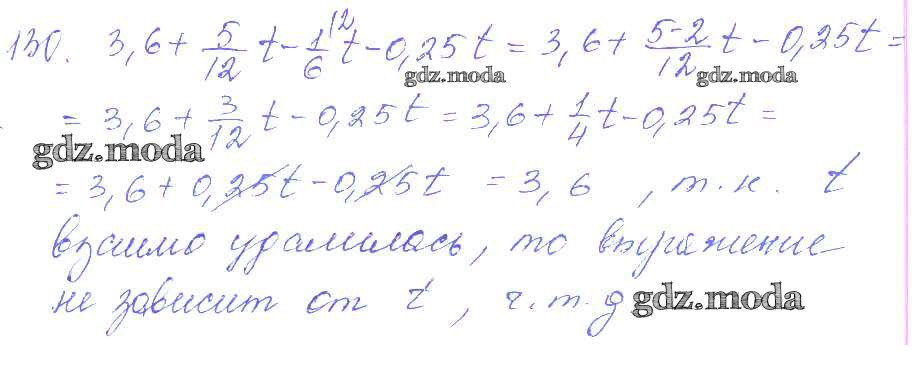 130. 3,6 + 5/12 t - 1/6 t - 0,25t = 3,6 + 5-2/12 t - 0,25t =
= 3,6 + 3/12 t - 0,25t = 3,6 + 1/4 t - 0,25t =
= 3,6 + 0,25t - 0,25t = 3,6 , т.к. t
взаимо удалилась, то выражение
не зависит от t , ч.т.д
gdz.moda
gdz.moda
gdz.moda
gdz.moda